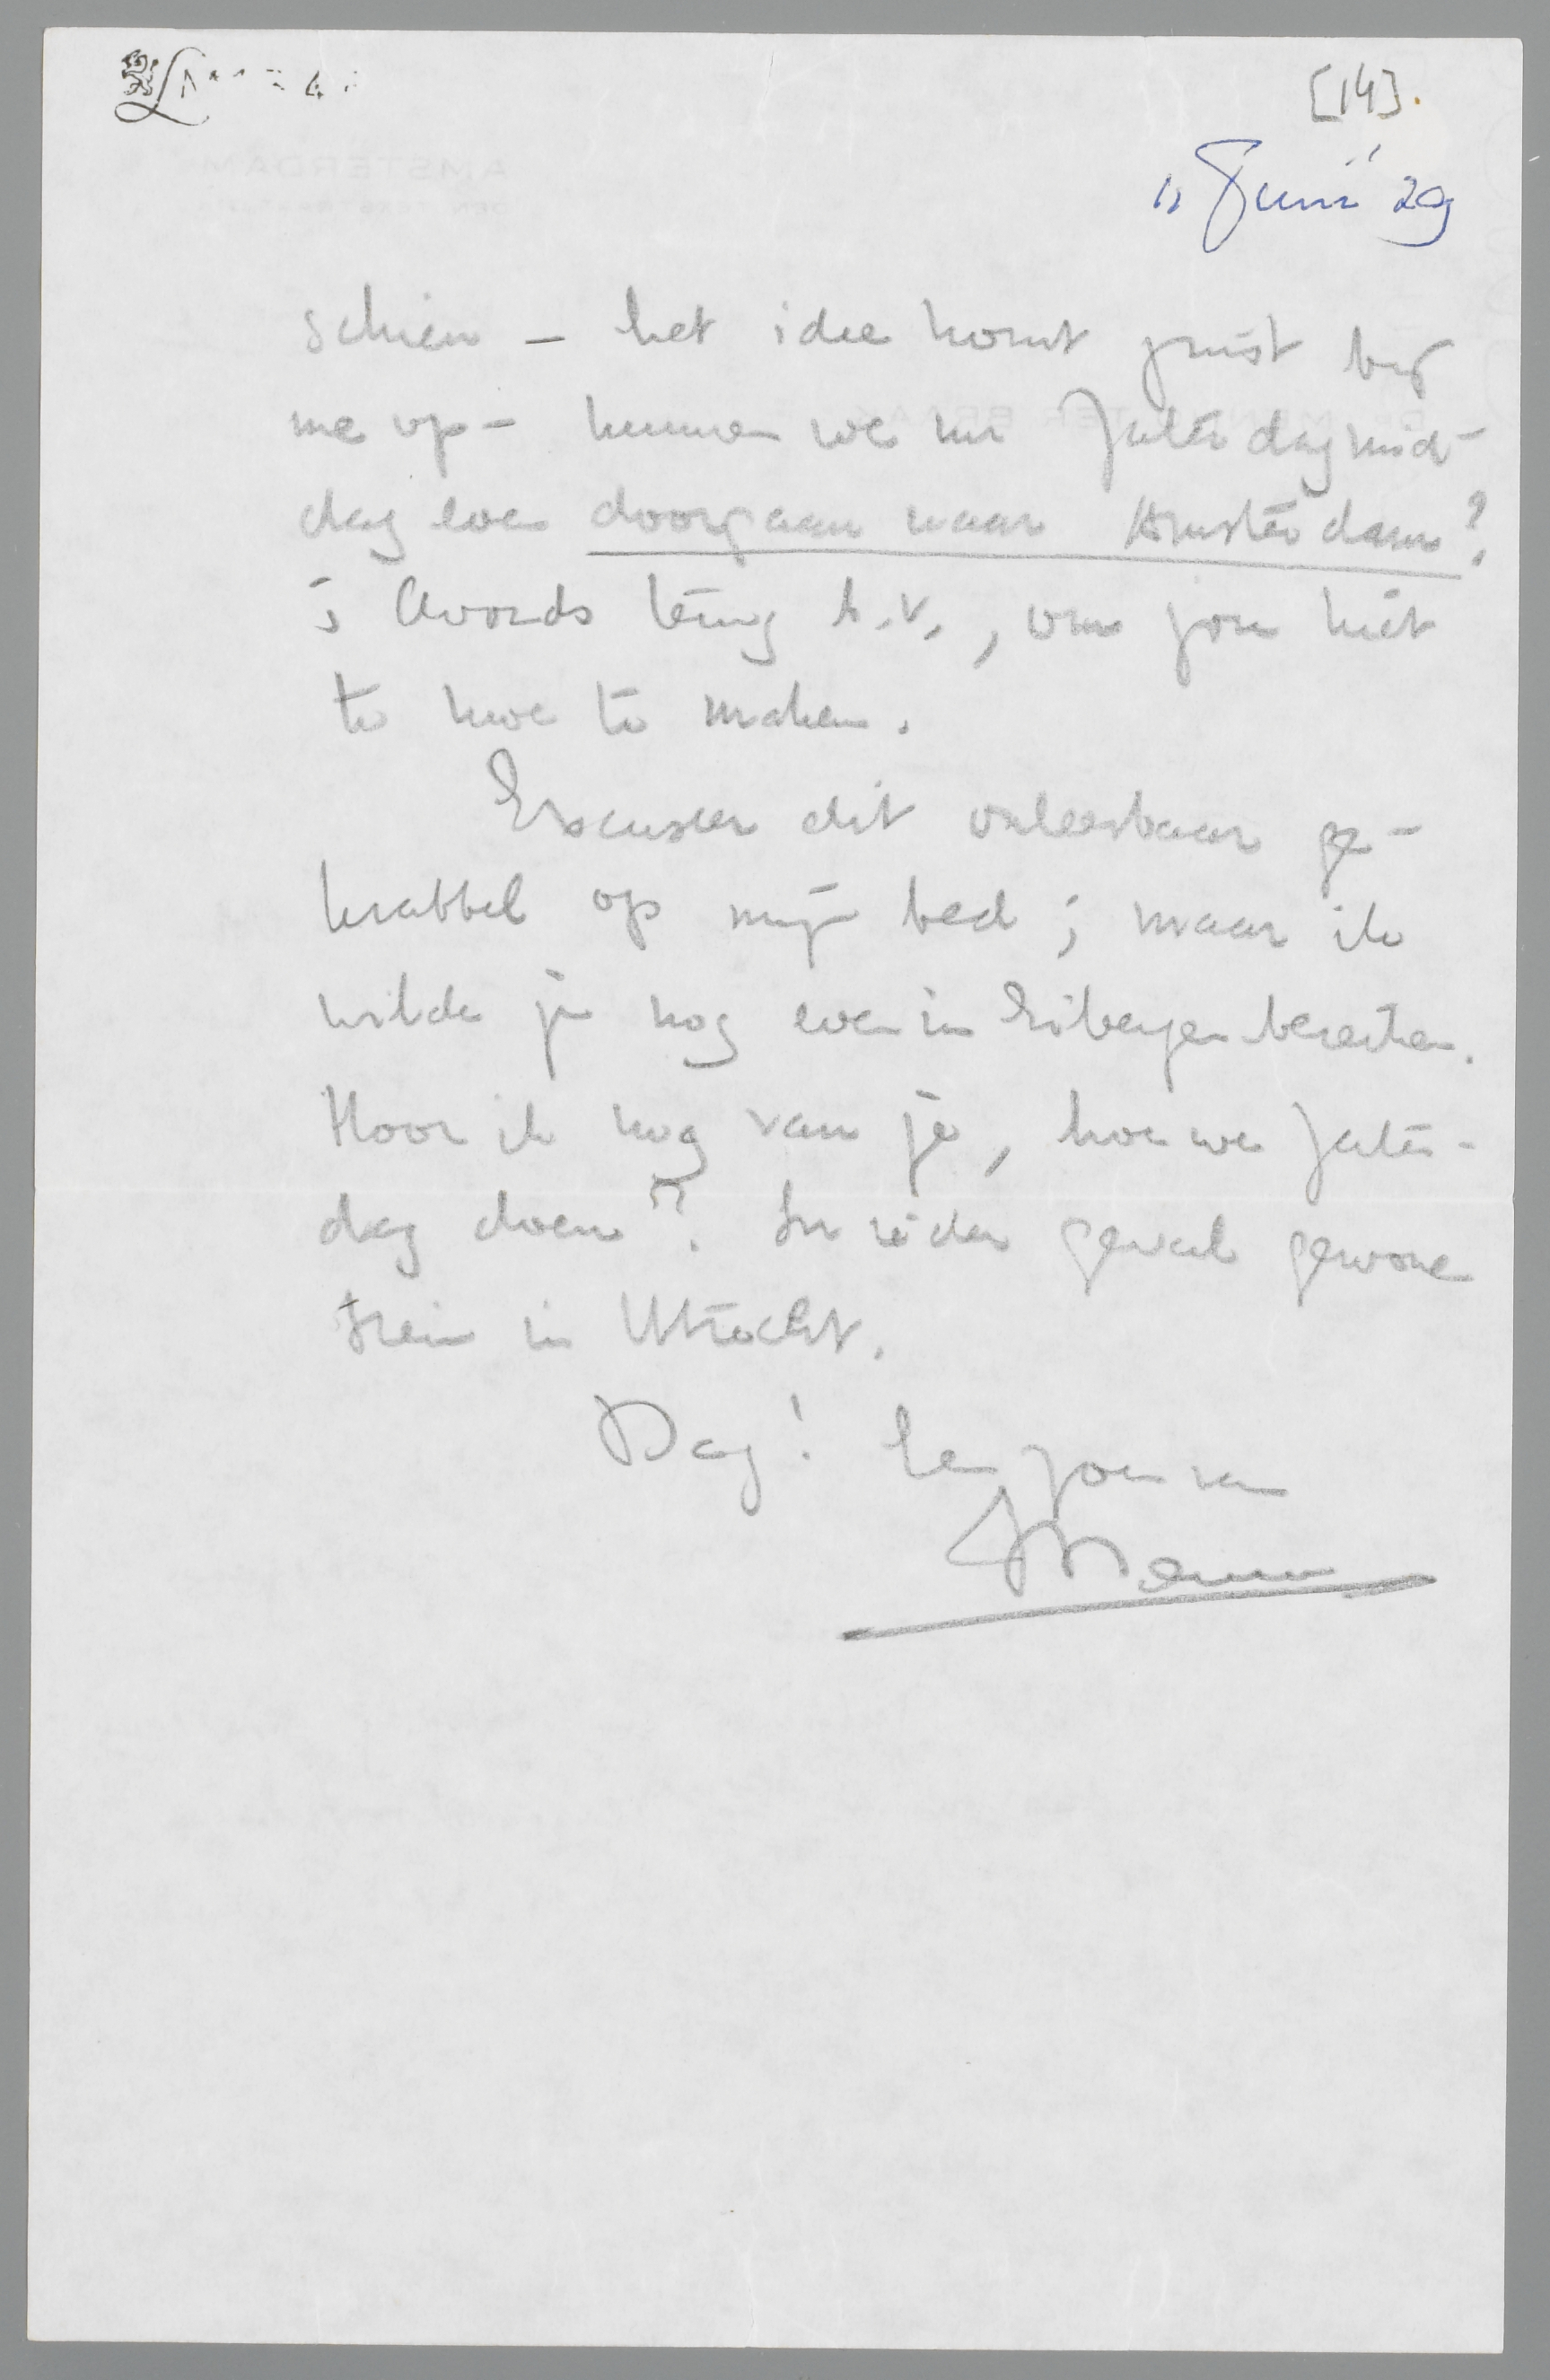 [14].
11 Juni '29
schien – het idee komt juist bij
me op – kunnen we nu Zaterdagmid-
dag even doorgaan naar Amsterdam?
's Avonds terug b.v., om jou niet
te moe te maken.
Excuseer dit onleesbaar ge-
krabbel op mijn bed; maar ik
wilde je nog even in Eibergen bereiken.
Hoor ik nog van je, hoe we Zater-
dag doen? In ieder geval gewone
trein in Utrecht.
Dag! Een zoen van
Menno